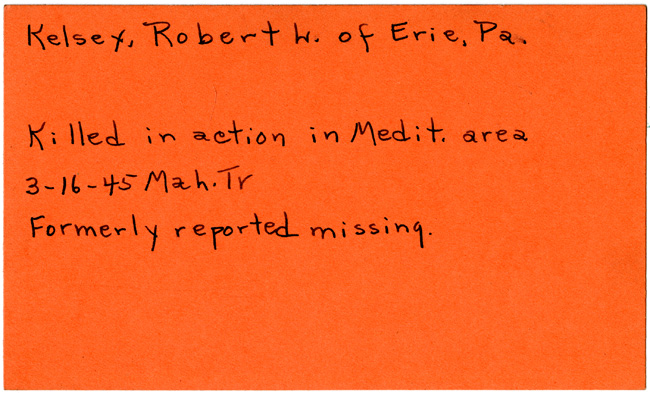 Kelsey, Robert W. of Erie, Pa.
Killed in action in Medit. area
3-16-45 Mah. Tr
Formerly reported missing.